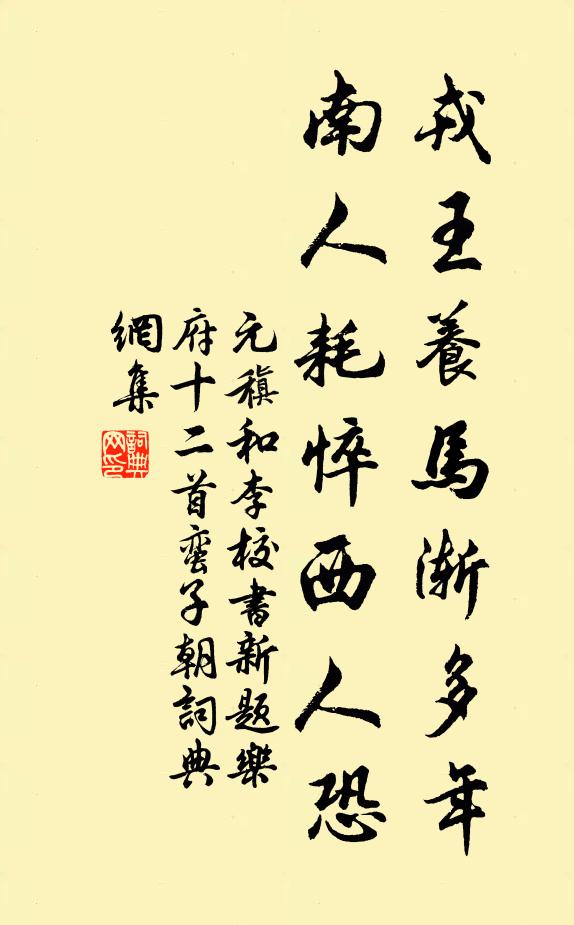 戎王養馬漸多年
南人耗悴西人恐
元稹和李校書新題樂
府十二首蛮子朝詞典
網集
詞典
网印